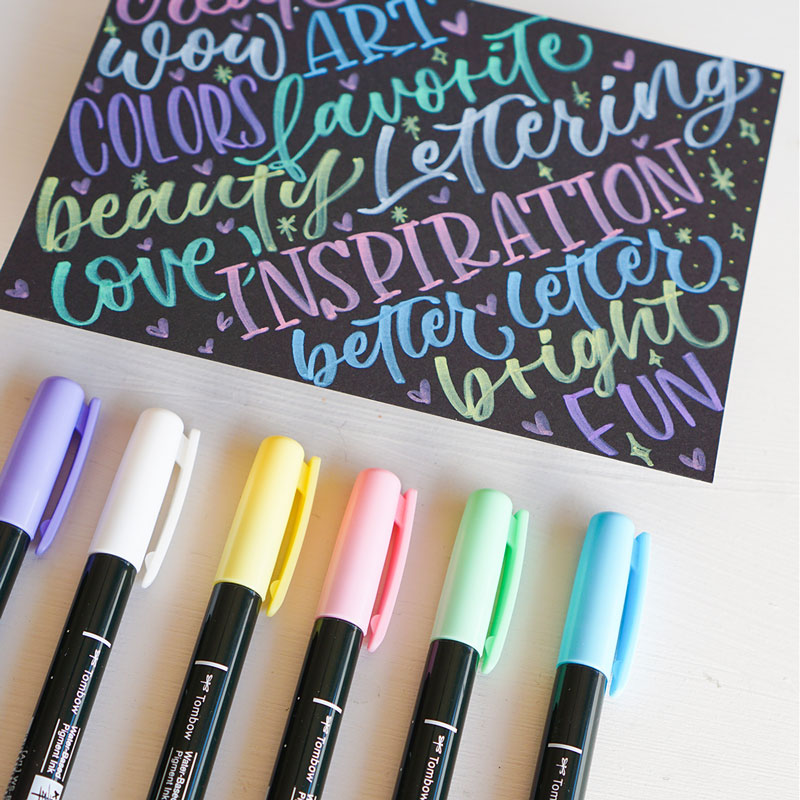 create
wow ART
COLORS favorite
beauty Lettering
love, INSPIRATION
better letter
bright
FUN
Tombow
Water-Based
Pigment Ink
Tombow
Water-Based
Pigment Ink
Tombow
Tombow
Tombow